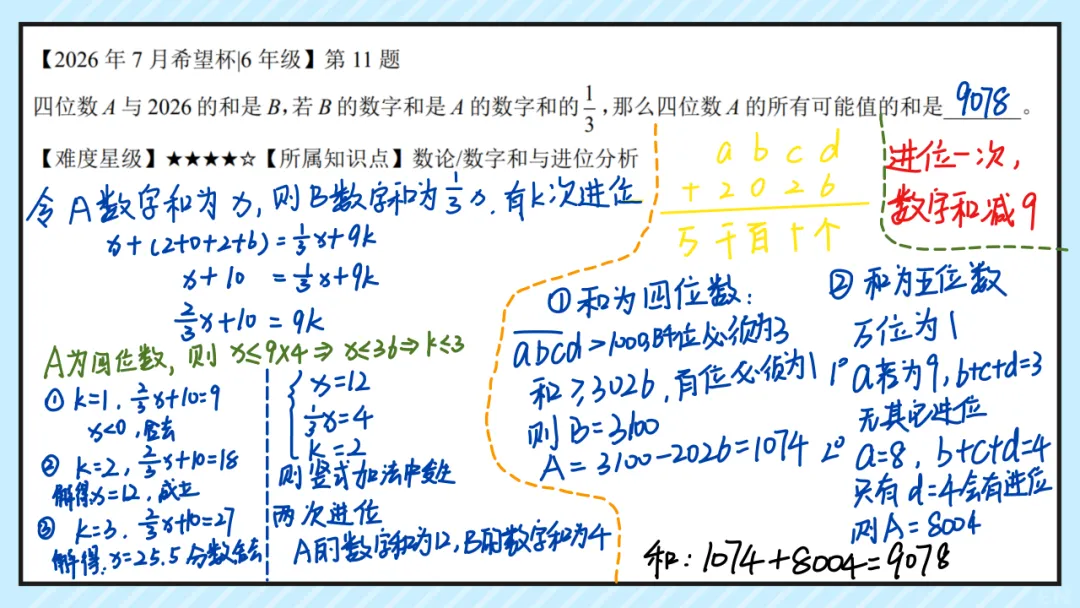 【2026 年 7 月希望杯|6 年级】第 11 题
四位数 A 与 2026 的和是 B,若 B 的数字和是 A 的数字和的 1/3,那么四位数 A 的所有可能值的和是 9078 。
【难度星级】★★★★☆【所属知识点】数论/数字和与进位分析
令 A 数字和为 x, 则 B 数字和为 1/3 x. 有 k 次进位
x+(2+0+2+6)=1/3x+9k
x+10 =1/3x+9k
2/3x+10=9k
A为四位数, 则 x≤9×4⇒x≤36⇒k≤3
① k=1, 2/3x+10=9
x<0, 舍去
② k=2, 2/3x+10=18
解得x=12, 成立
③ k=3. 2/3x+10=27
解得. x=25.5 分数舍去
{ x=12
1/3x=4
k=2
则竖式加法中发生
两次进位
A的数字和为12,B的数字和为4
a b c d
+ 2 0 2 6
万 千 百 十 个
进位一次,
数字和减9
① 和为四位数:
abcd>1000,B千位必须为3
和≥3026, 百位必须为1
则 B=3100
A=3100-2026=1074
② 和为五位数
万位为1
1° a若为9, b+c+d=3
无其它进位
2° a=8, b+c+d=4
只有 d=4会有进位
则A=8004
和: 1074+8004=9078